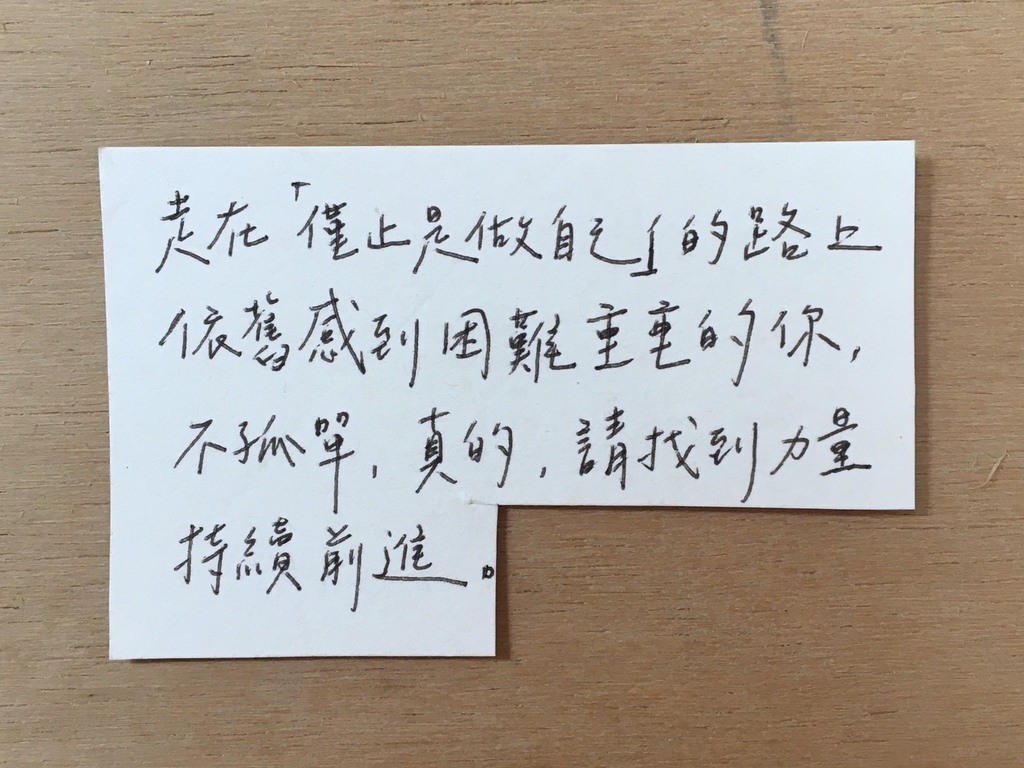 走在「僅止是做自己」的路上
依舊感到困難重重的你,
不孤單,真的,請找到力量
持續前進。